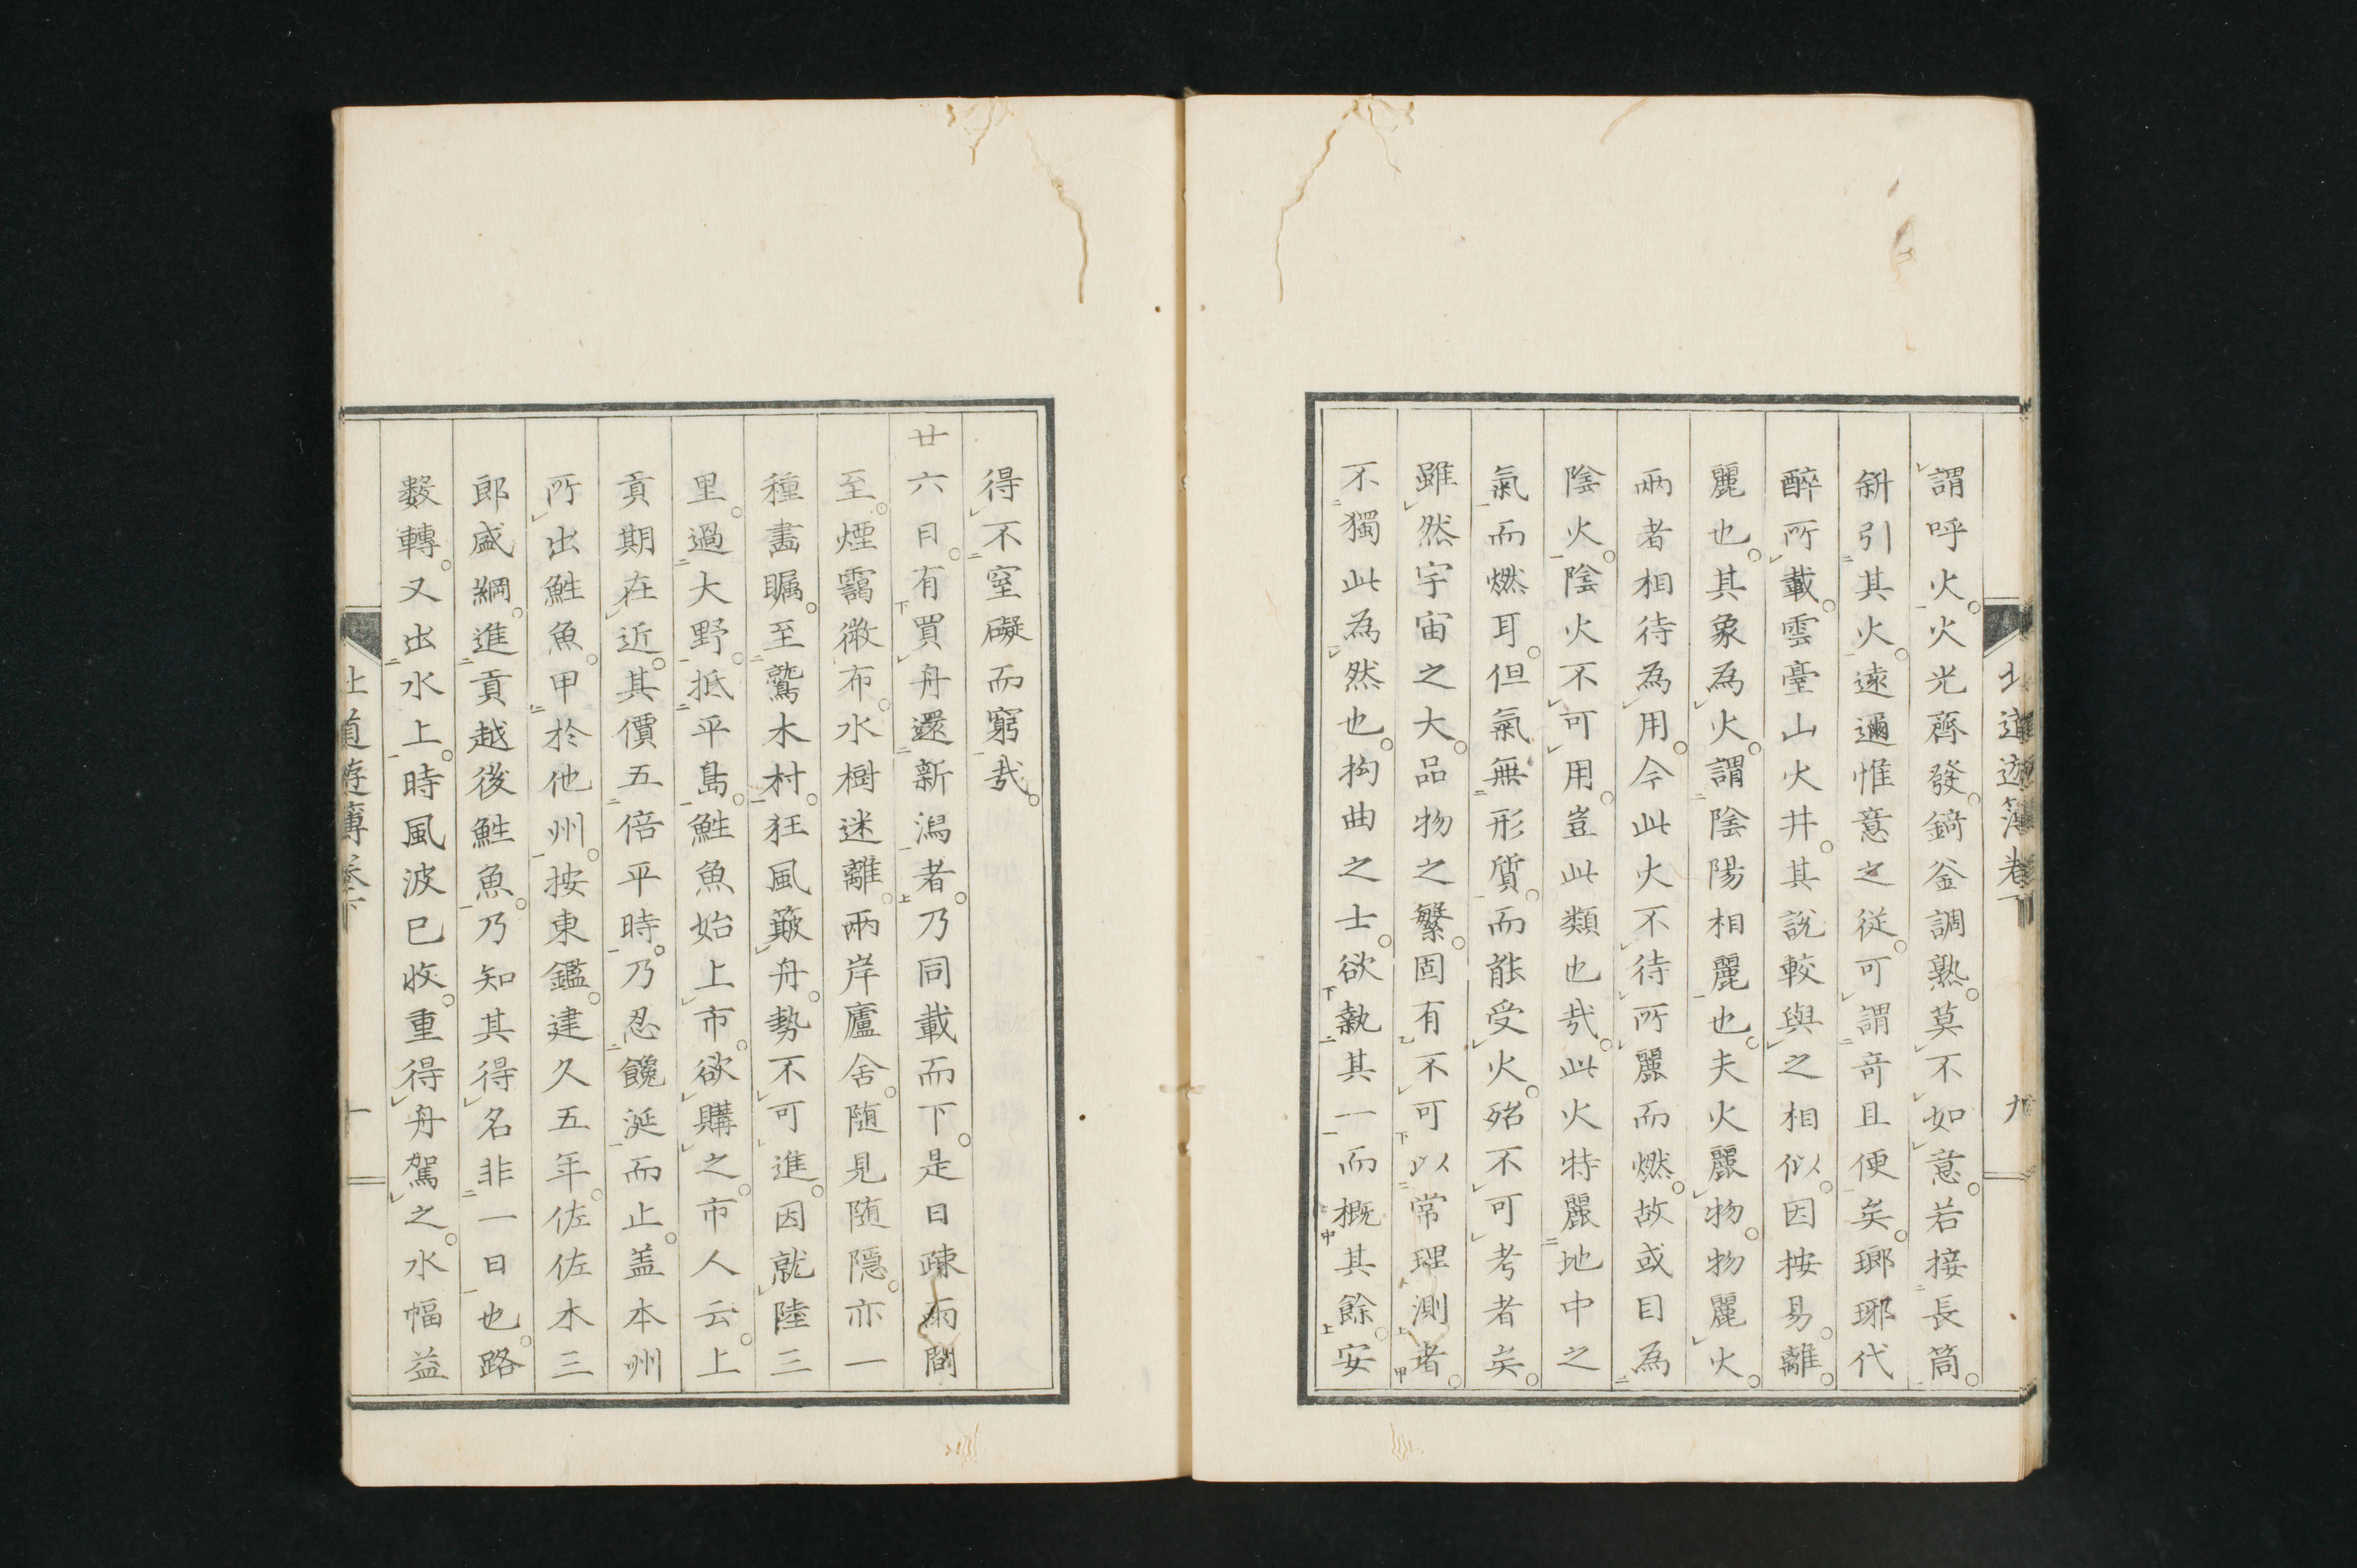 北道遊簿卷下 九
謂呼火。火光齊發。錡釜調熟。莫不如意。若接長筒。
斜引其火。遠邇惟意之従。可謂竒且便矣。瑯琊代
醉所載。雲臺山火井。其説較與之相似。因按易。離。
麗也。其象為火。謂陰陽相麗也。夫火麗物。物麗火。
兩者相待為用。今此火不待所麗而燃。故或目為
陰火。陰火不可用。豈此類也㢤。此火特麗地中之
氣而燃耳。但氣無形質。而能受火。殆不可考者矣。
雖然宇宙之大。品物之繁。固有不可以常理測者。
不獨此為然也。拘曲之士。欲執其一而概其餘。安
得不窒礙而窮㢤。
廿六日。有買舟還新潟者。乃同載而下。是日疎雨間
至。煙靄微布。水樹迷離。兩岸廬舍。随見随隱。亦一
種畵矚。至鷲木村。狂風簸舟。勢不可進。因就陸三
里。過大野。抵平島。鮏魚始上市。欲購之。市人云。上
貢期在近。其價五倍平時。乃忍饞涎而止。盖本州
所出鮏魚。甲於他州。按東鑑。建久五年。佐佐木三
郎盛綱。進貢越後鮏魚。乃知其得名非一日也。路
數轉。又出水上。時風波已收。重得舟駕之。水幅益
北道遊簿卷下 十